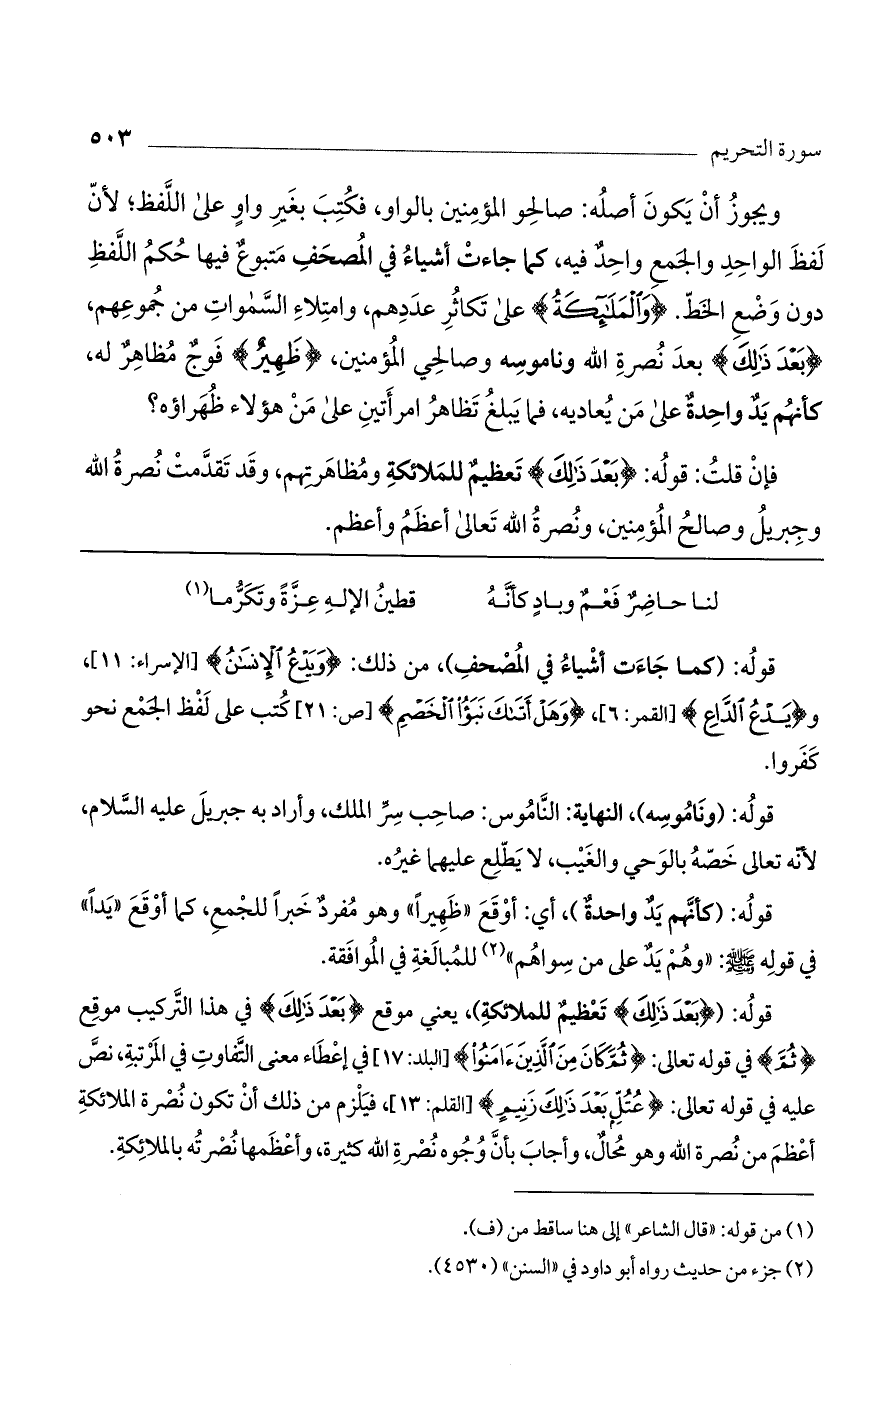 سورة التحريم ٥٠٣
ويجوزُ أنْ يَكونَ أصلُه: صالِحو المؤمِنين بالواو، فكُتِبَ بغَيرِ واوٍ علىٰ اللَّفظ؛ لأنّ
لَفظَ الواحِدِ والجَمعِ واحِدٌ فيه، كما جاءتْ أشياءُ في المُصحَفِ مَتبوعٌ فيها حُكمُ اللَّفظِ
دون وَضْعِ الخَطّ. ﴿وَٱلْمَلَٰٓئِكَةُ﴾ علىٰ تَكاثُرِ عدَدِهم، وامتِلاءِ السَّمٰواتِ من جُموعِهم،
﴿بَعْدَ ذَٰلِكَ﴾ بعدَ نُصرةِ الله وناموسِه وصالِحي المُؤمنين، ﴿ظَهِيرٌ﴾ فَوجٌ مُظاهِرٌ له،
كأنهُم يَدٌ واحِدةٌ علىٰ مَن يُعاديه، فما يَبلغُ تَظاهرُ امرأَتينِ علىٰ مَنْ هؤلاء ظُهَراؤه؟
فإنْ قلتُ: قولُه: ﴿بَعْدَ ذَٰلِكَ﴾ تَعظيمٌ للمَلائكةِ ومُظاهَرتِهم، وقَد تَقدَّمتْ نُصرةُ الله
وجِبريلُ وصالحُ المُؤمنين، ونُصرةُ الله تَعالىٰ أعظَمُ وأعظم.
لنا حاضِرٌ فَعْمٌ وبادٍ كأنَّهُ قطينُ الإلهِ عِزَّةً وتَكَرُّما(١)
قولُه: (كما جَاءَت أشْياءُ في المُصْحفِ)، من ذلك: ﴿وَيَدْعُ ٱلْإِنسَٰنُ﴾ [الإسراء: ١١]،
و﴿يَدْعُ ٱلدَّاعِ﴾ [القمر: ٦]، ﴿وَهَلْ أَتَىٰكَ نَبَؤُا۟ ٱلْخَصْمِ﴾ [ص: ٢١] كُتب على لَفْظ الجَمْع نحو
كَفَروا.
قولُه: (ونَامُوسِه)، النهاية: النَّاموس: صاحِب سِرِّ الملك، وأراد به جبريلَ عليه السَّلام،
لأنّه تعالى خَصّهُ بالوَحي والغَيْب، لا يَطّلِع عليهما غيرُه.
قولُه: (كأنّهم يَدٌ واحدةٌ)، أي: أوْقَعَ «ظَهِيراً» وهو مُفردٌ خَبراً للجْمع، كما أوْقَعَ «يَداً»
في قولِه ﷺ: «وهُمْ يَدٌ على من سِواهُم»(٢) للمُبالَغةِ في المُوافَقة.
قولُه: (﴿بَعْدَ ذَٰلِكَ﴾ تَعْظيمٌ للملائكةِ)، يعني موقع ﴿بَعْدَ ذَٰلِكَ﴾ في هذا التَّركيب موقِع
﴿ثُمَّ﴾ في قوله تعالى: ﴿ثُمَّ كَانَ مِنَ ٱلَّذِينَ ءَامَنُوا۟﴾ [البلد: ١٧] في إعْطَاء معنى التَّفاوتِ في المَرْتبةِ، نصَّ
عليه في قوله تعالى: ﴿عُتُلٍّۭ بَعْدَ ذَٰلِكَ زَنِيمٍ﴾ [القلم: ١٣]، فيَلْزم من ذلك أنْ تكون نُصْرة الملائكةِ
أعْظمَ من نُصرة الله وهو مُحالٌ، وأجابَ بأنَّ وُجُوه نُصْرةِ الله كثيرة، وأعْظَمها نُصْرتُه بالملائِكةِ.
(١) من قوله: «قال الشاعر» إلى هنا ساقط من (ف).
(٢) جزء من حديث رواه أبو داود في «السنن» (٤٥٣٠).